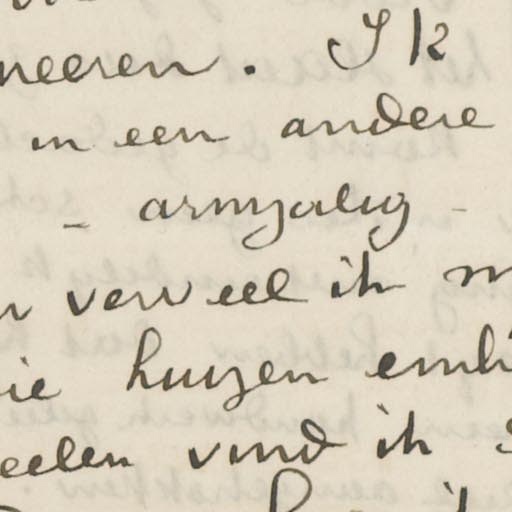 neeren. Ik
in een andere
- armzalig -
verveel ik
huizen
eelen vind ik